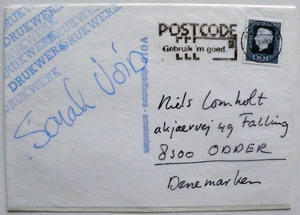 DRUKWERK
DRUKWERK
DRUKWERK
DRUKWERK
POSTCODE
Gebruik 'm goed.
Sarah
VOID distributors - amsterdam
Niels Lomholt
akjaervej 49 Falling
8300 ODDER
Denemarken